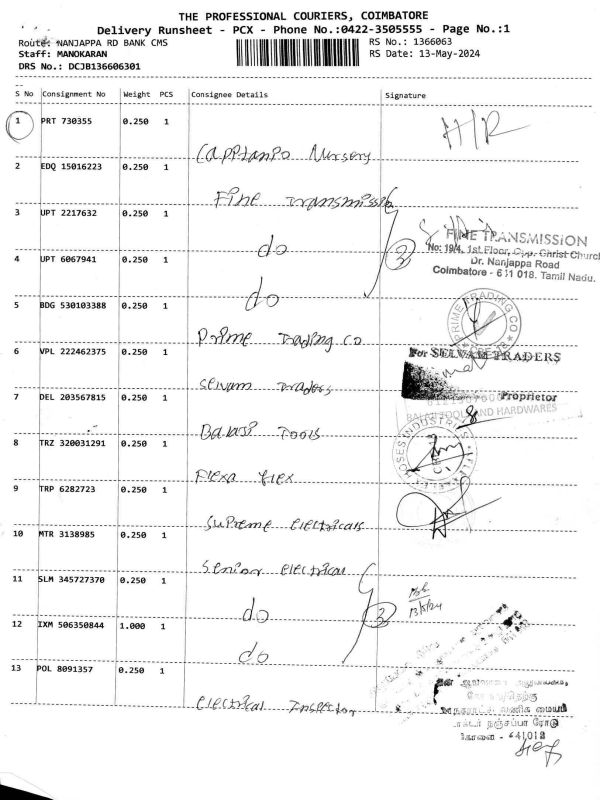 THE PROFESSIONAL COURIERS, COIMBATORE
Delivery Runsheet - PCX - Phone No.:0422-3505555 - Page No.:1
Route: NANJAPPA RD BANK CMS
RS No.: 1366063
Staff: MANOKARAN
RS Date: 13-May-2024
DRS No.: DCJB136606301
S No Consignment No Weight PCS Consignee Details Signature
1 PRT 730355 0.250 1
H/R
2 EDQ 15016223 0.250 1
Nursery
Fine Transmission
3 UPT 2217632 0.250 1
do
3
FINE TRANSMISSION
No: 19/4, 1st Floor, Opp. Christ Church
Dr. Nanjappa Road
Coimbatore - 641 018. Tamil Nadu.
4 UPT 6067941 0.250 1
do
5 BDG 530103388 0.250 1
PRIME TRADING CO
Prime Trading Co
6 VPL 222462375 0.250 1
For SELVAM TRADERS
Selvam Traders
7 DEL 203567815 0.250 1
Proprietor
BALAJI TOOLS AND HARDWARES
Balaji Tools
8 TRZ 320031291 0.250 1
Flexa Flex
9 TRP 6282723 0.250 1
Supreme Electricals
10 MTR 3138985 0.250 1
Senior Electrical
11 SLM 345727370 0.250 1
do
3
13/5/24
12 IXM 506350844 1.000 1
do
13 POL 8091357 0.250 1
Electrical Inspector
டாக்டர் நஞ்சப்பா ரோடு
கோவை - 641018